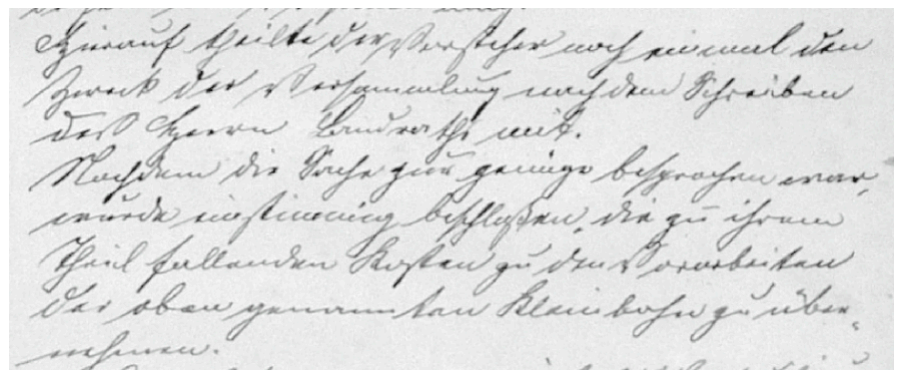 Hierauf theilte der Vorsteher noch ein mal den
Zweck der Versammlung nach dem Schreiben
deß Herrn Landraths mit.
Nachdem die Sache zur genüge besprochen war,
wurde einstimmig beschloßen, die zu ihrem
Theil fallenden Kosten zu den Vorarbeiten
der oben genannten Kleinbahn zu über-
nehmen.